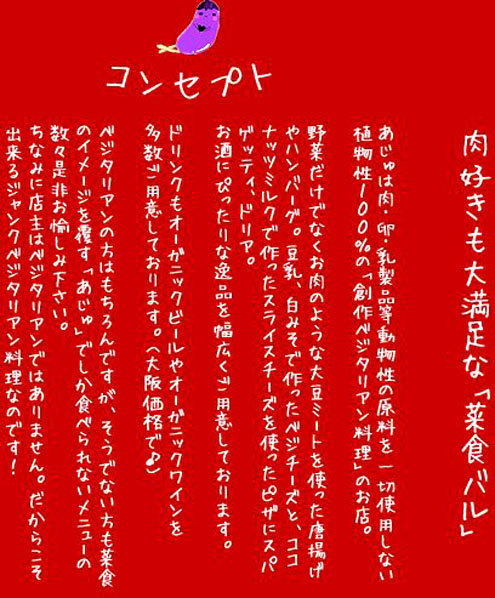 コンセプト
肉好きも大満足な「菜食バル」
あじゅは肉・卵・乳製品等動物性の原料を一切使用しない
植物性100%の「創作ベジタリアン料理」のお店。
野菜だけでなくお肉のような大豆ミートを使った唐揚げ
やハンバーグ。豆乳、白みそで作ったベジチーズと、ココ
ナッツミルクで作ったスライスチーズを使ったピザにスパ
ゲッティ、ドリア。
お酒にぴったりな逸品を幅広くご用意しております。
ドリンクもオーガニックビールやオーガニックワインを
多数ご用意しております。(大阪価格で♪)
ベジタリアンの方はもちろんですが、そうでない方も菜食
のイメージを覆す「あじゅ」でしか食べられないメニューの
数々是非お愉しみ下さい。
ちなみに店主はベジタリアンではありません。だからこそ
出来るジャンクベジタリアン料理なのです!